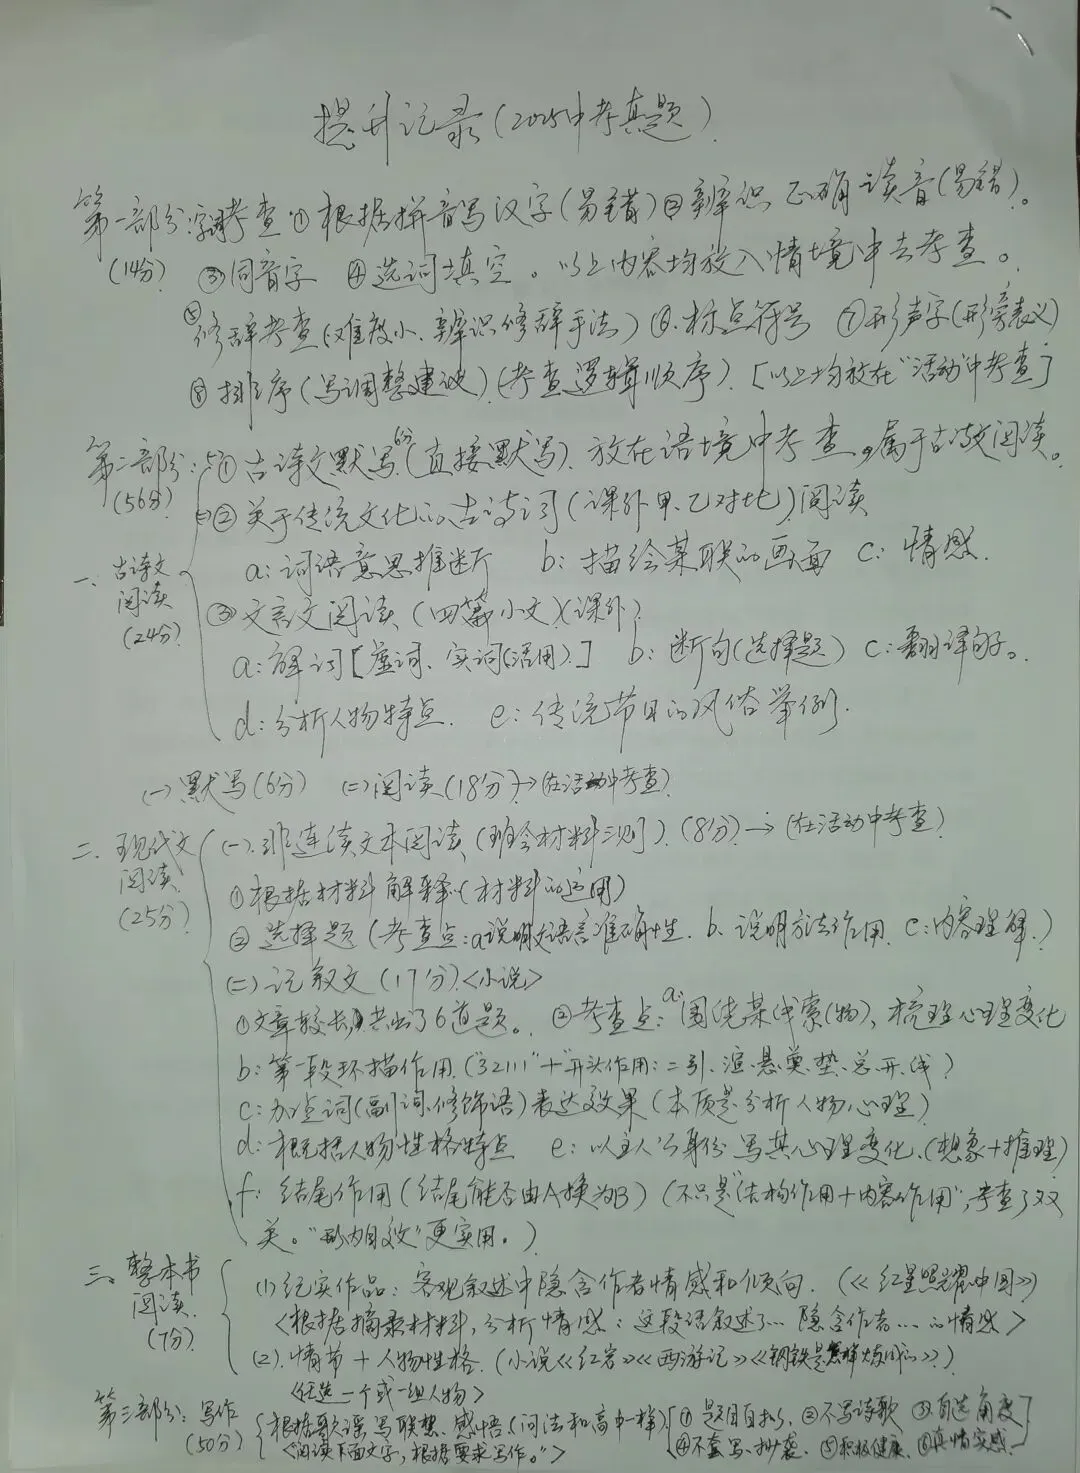 提升记录(2025中考真题).
第一部分:字词考查①根据拼音写汉字(易错)②辨识正确读音(易错)。
(14分) ③同音字 ④选词填空。以上内容均放入情境中去考查。
⑤修辞考查(难度小、辨识修辞手法)⑥.标点符号 ⑦形声字(形旁表义)
⑧排序(写调整建议)(考查逻辑顺序).[以上均放在“活动”中考查]
第二部分:①古诗文默写6分(直接默写).放在语境中考查。属于古诗文阅读。
(56分) ②关于传统文化的古诗词(课外甲、乙对比)阅读
a:词语意思推断 b:描绘某联的画面 c:情感.
一、古诗文阅读(24分)
③文言文阅读(四篇小文)(课外)
a:解词[虚词、实词(活用).] b:断句(选择题) c:翻译句子。
d:分析人物特点. e:传统节日的风俗举例.
(一)默写(6分) (二)阅读(18分)→(在活动中考查)
二、现代文阅读(25分)
(一).非连续文本阅读(班会材料三则).(8分)→(在活动中考查)
①根据材料解释(材料的运用)
②选择题(考查点:a说明文语言准确性. b.说明方法作用. c:内容理解.)
(二)记叙文(17分)<小说>
①文章较长,共出了6道题。 ②考查点:a:围绕某线索(物)、梳理心理变化
b:第一段环描作用.(“32111”+“开头作用:二引、渲、悬、奠、垫、总、开、线)
c:加点词(副词、修饰语)表达效果(本质是分析人物心理)
d:概括人物性格特点 e:以主人公身份写其心理变化.(想象+推理)
f:结尾作用(结尾能否由A换为B)(不只是“结构作用+内容作用”,考查了双
关。“形内目效”更实用。)
三、整本书阅读.(7分)
(1)纪实作品:客观叙述中隐含作者情感和倾向.(《红星照耀中国》)
<根据摘录材料,分析情感:这段话叙述了…隐含作者…的情感>
(2).情节+人物性格.(小说《红岩》《西游记》《钢铁是怎样炼成的》?)
<任选一个或一组人物>
第三部分:写作(50分)
根据歌谣写联想、感悟(问法和高中一样)[①题目自拟,②不写诗歌 ③自选角度
<阅读下面文字,根据要求写作。”> ④不套写、抄袭. ⑤积极健康. ⑥真情实感.]